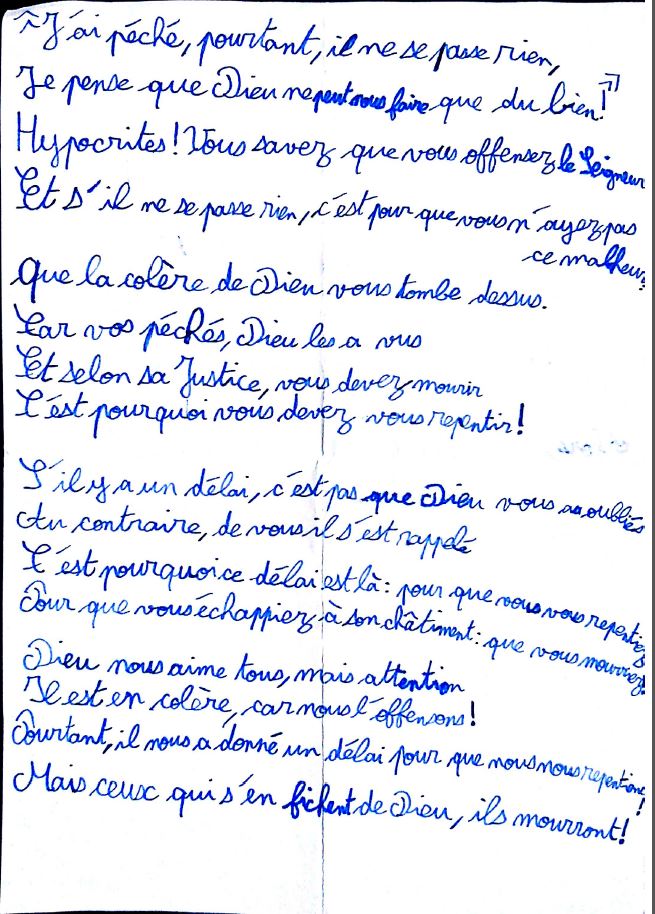 «J'ai péché, pourtant, il ne se passe rien,
Je pense que Dieu ne peut nous faire que du bien!»
Hypocrites! Vous savez que vous offensez le Seigneur
Et s'il ne se passe rien, c'est pour que vous n'ayez pas
ce malheur:
Que la colère de Dieu vous tombe dessus.
Car vos péchés, Dieu les a vus
Et selon sa Justice, vous devez mourir
C'est pourquoi vous devez vous repentir!
S'il y a un délai, c'est pas que Dieu vous a oubliés
Au contraire, de vous il s'est rappelé
C'est pourquoi ce délai est là: pour que vous vous repentiez
Pour que vous échappiez à son châtiment: que vous mourriez!
Dieu nous aime tous, mais attention
Il est en colère, car nous l'offensons!
Pourtant, il nous a donné un délai pour que nous nous repentions!
Mais ceux qui s'en fichent de Dieu, ils mourront!